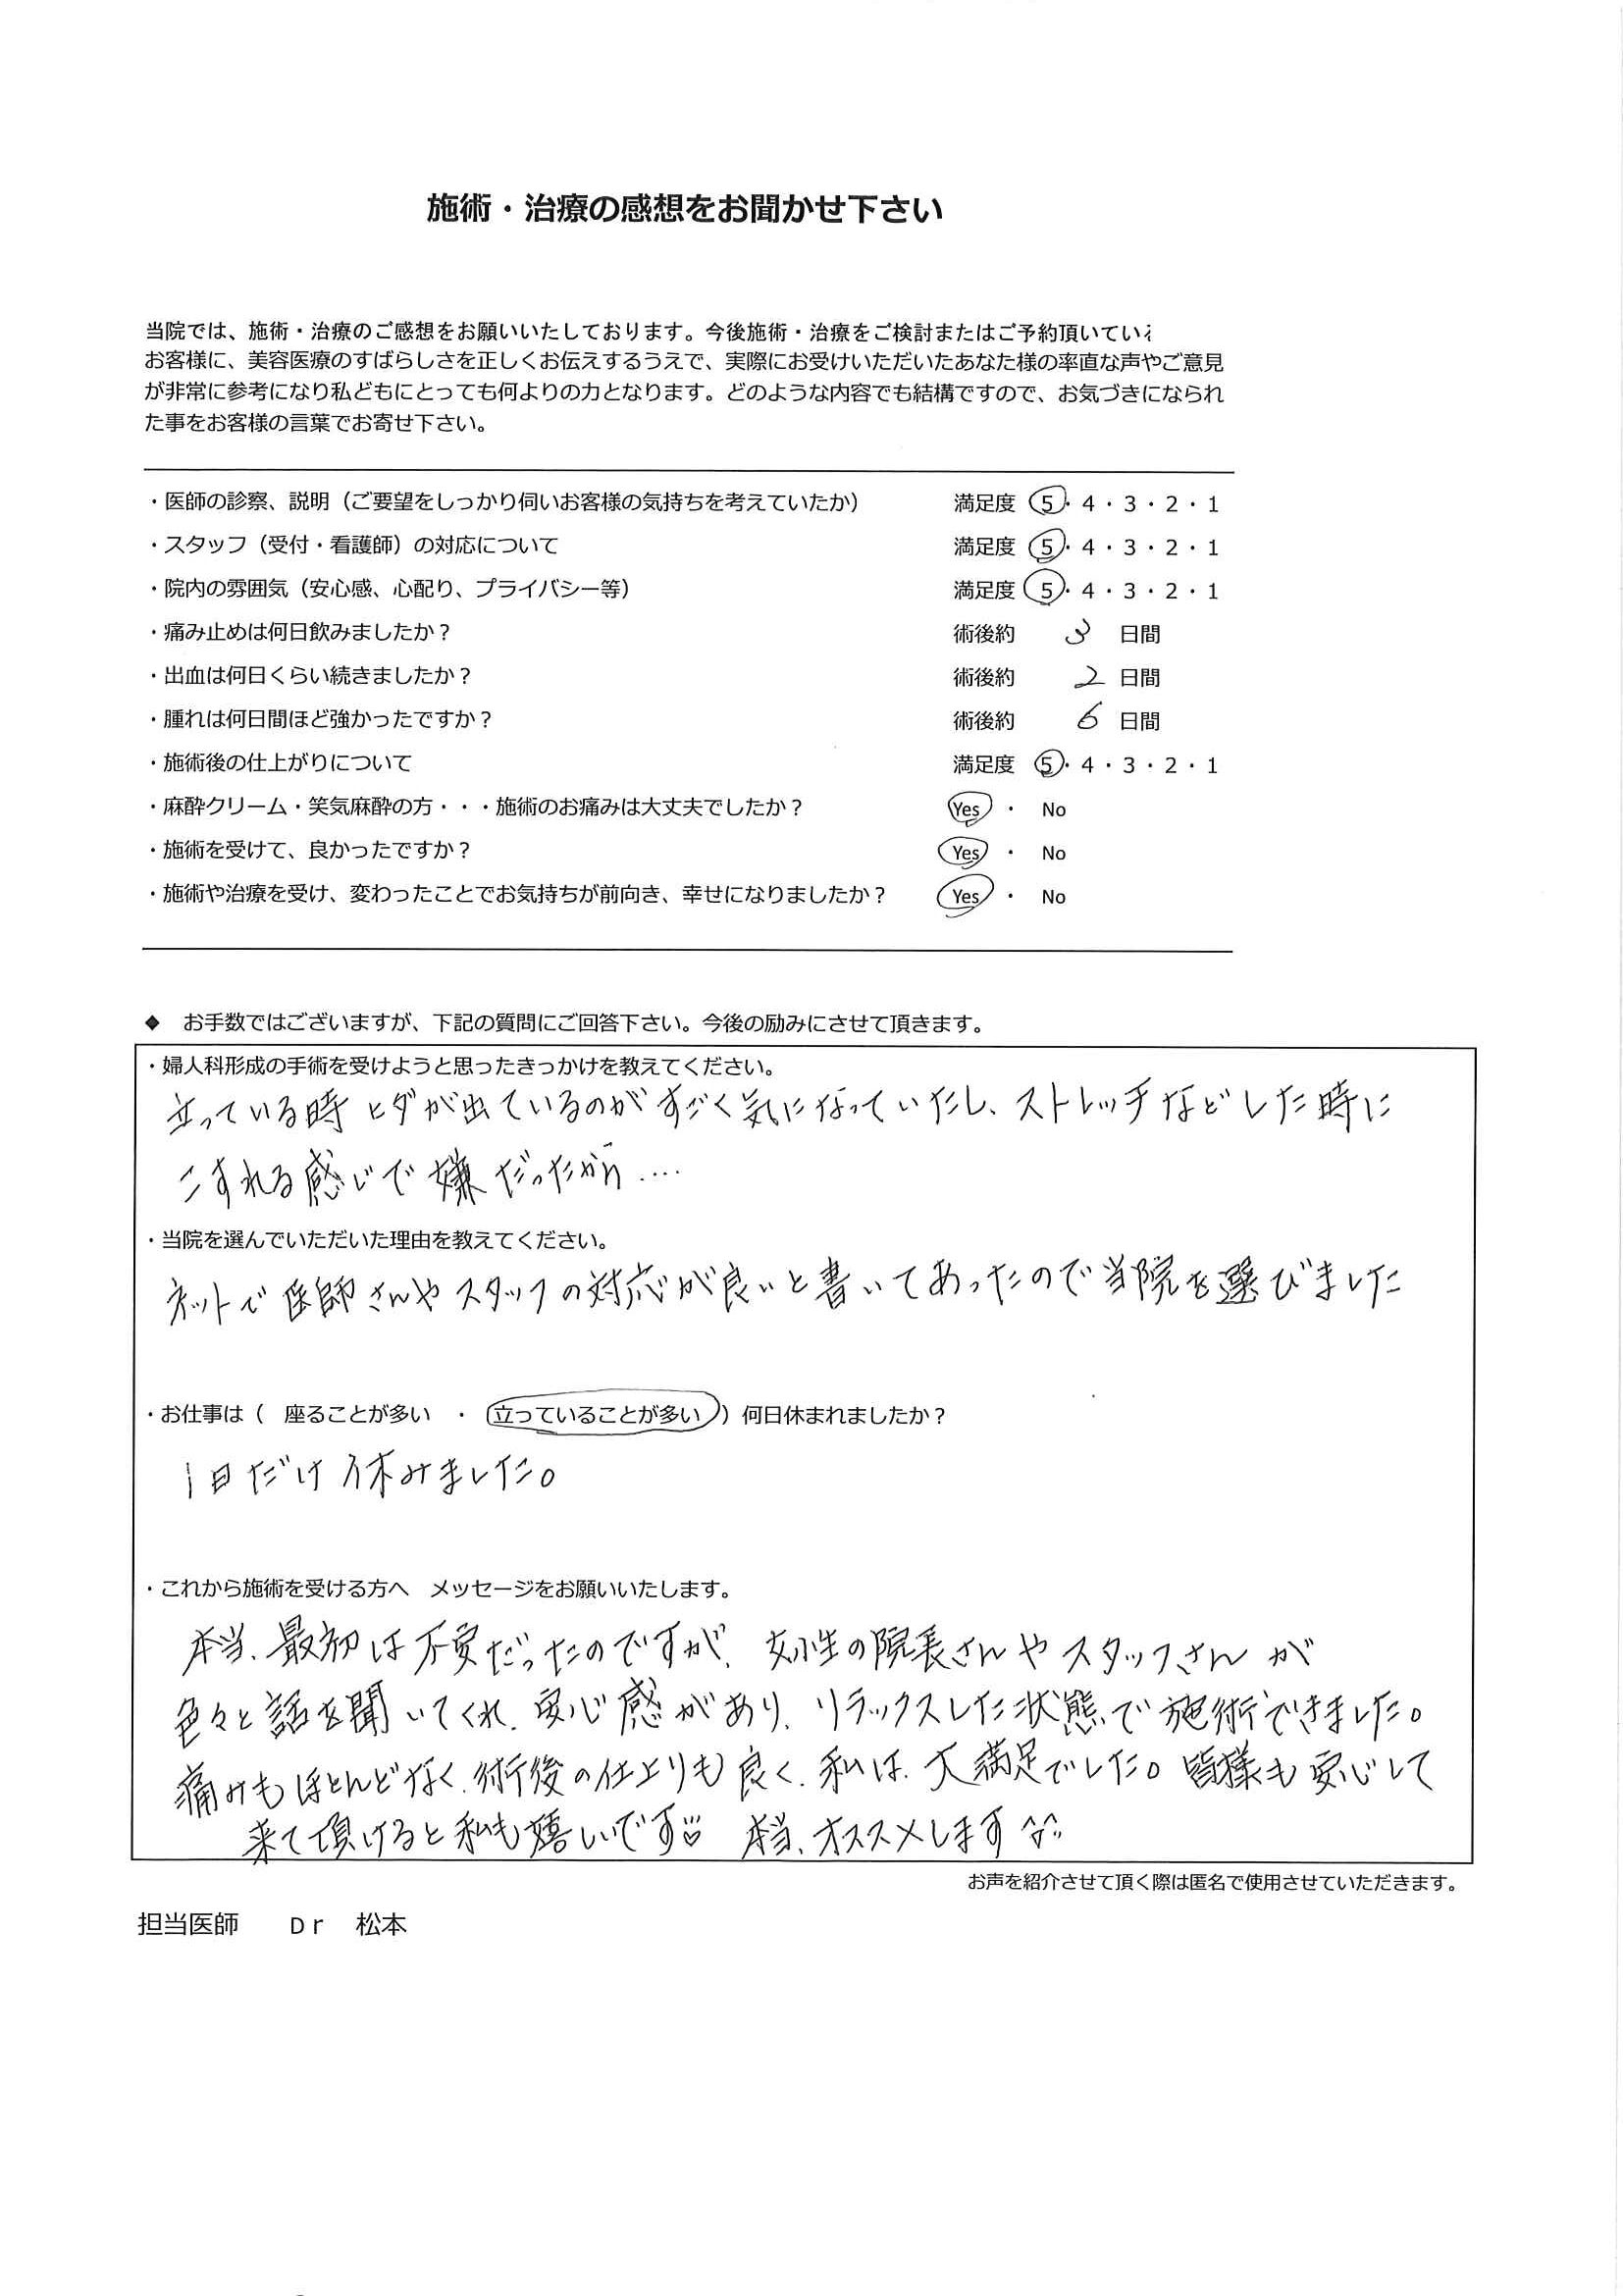 施術・治療の感想をお聞かせ下さい
当院では、施術・治療のご感想をお願いいたしております。今後施術・治療をご検討またはご予約頂いている
お客様に、美容医療のすばらしさを正しくお伝えするうえで、実際にお受けいただいたあなた様の率直な声やご意見
が非常に参考になり私どもにとっても何よりの力となります。どのような内容でも結構ですので、お気づきになられ
た事をお客様の言葉でお寄せ下さい。
・医師の診察、説明（ご要望をしっかり伺いお客様の気持ちを考えていたか） 満足度 5・4・3・2・1
・スタッフ（受付・看護師）の対応について 満足度 5・4・3・2・1
・院内の雰囲気（安心感、心配り、プライバシー等） 満足度 5・4・3・2・1
・痛み止めは何日飲みましたか？ 術後約 3 日間
・出血は何日くらい続きましたか？ 術後約 2 日間
・腫れは何日間ほど強かったですか？ 術後約 6 日間
・施術後の仕上がりについて 満足度 5・4・3・2・1
・麻酔クリーム・笑気麻酔の方・・・施術のお痛みは大丈夫でしたか？ Yes ・ No
・施術を受けて、良かったですか？ Yes ・ No
・施術や治療を受け、変わったことでお気持ちが前向き、幸せになりましたか？ Yes ・ No
◆ お手数ではございますが、下記の質問にご回答下さい。今後の励みにさせて頂きます。
・婦人科形成の手術を受けようと思ったきっかけを教えてください。
立っている時ヒダが出ているのがすごく気になっていたし、ストレッチなどした時に
こすれる感じで嫌だったから…
・当院を選んでいただいた理由を教えてください。
ネットで医師さんやスタッフの対応が良いと書いてあったので当院を選びました
・お仕事は（ 座ることが多い ・ 立っていることが多い ）何日休まれましたか？
1日だけ休みました。
・これから施術を受ける方へ メッセージをお願いいたします。
本当、最初は不安だったのですが、女性の院長さんやスタッフさんが
色々と話を聞いてくれ、安心感があり、リラックスした状態で施術できました。
痛みもほとんどなく、術後の仕上りも良く、私は、大満足でした。皆様も安心して
来て頂けると私も嬉しいです♡ 本当、オススメします^^
お声を紹介させて頂く際は匿名で使用させていただきます。
担当医師 Dr 松本